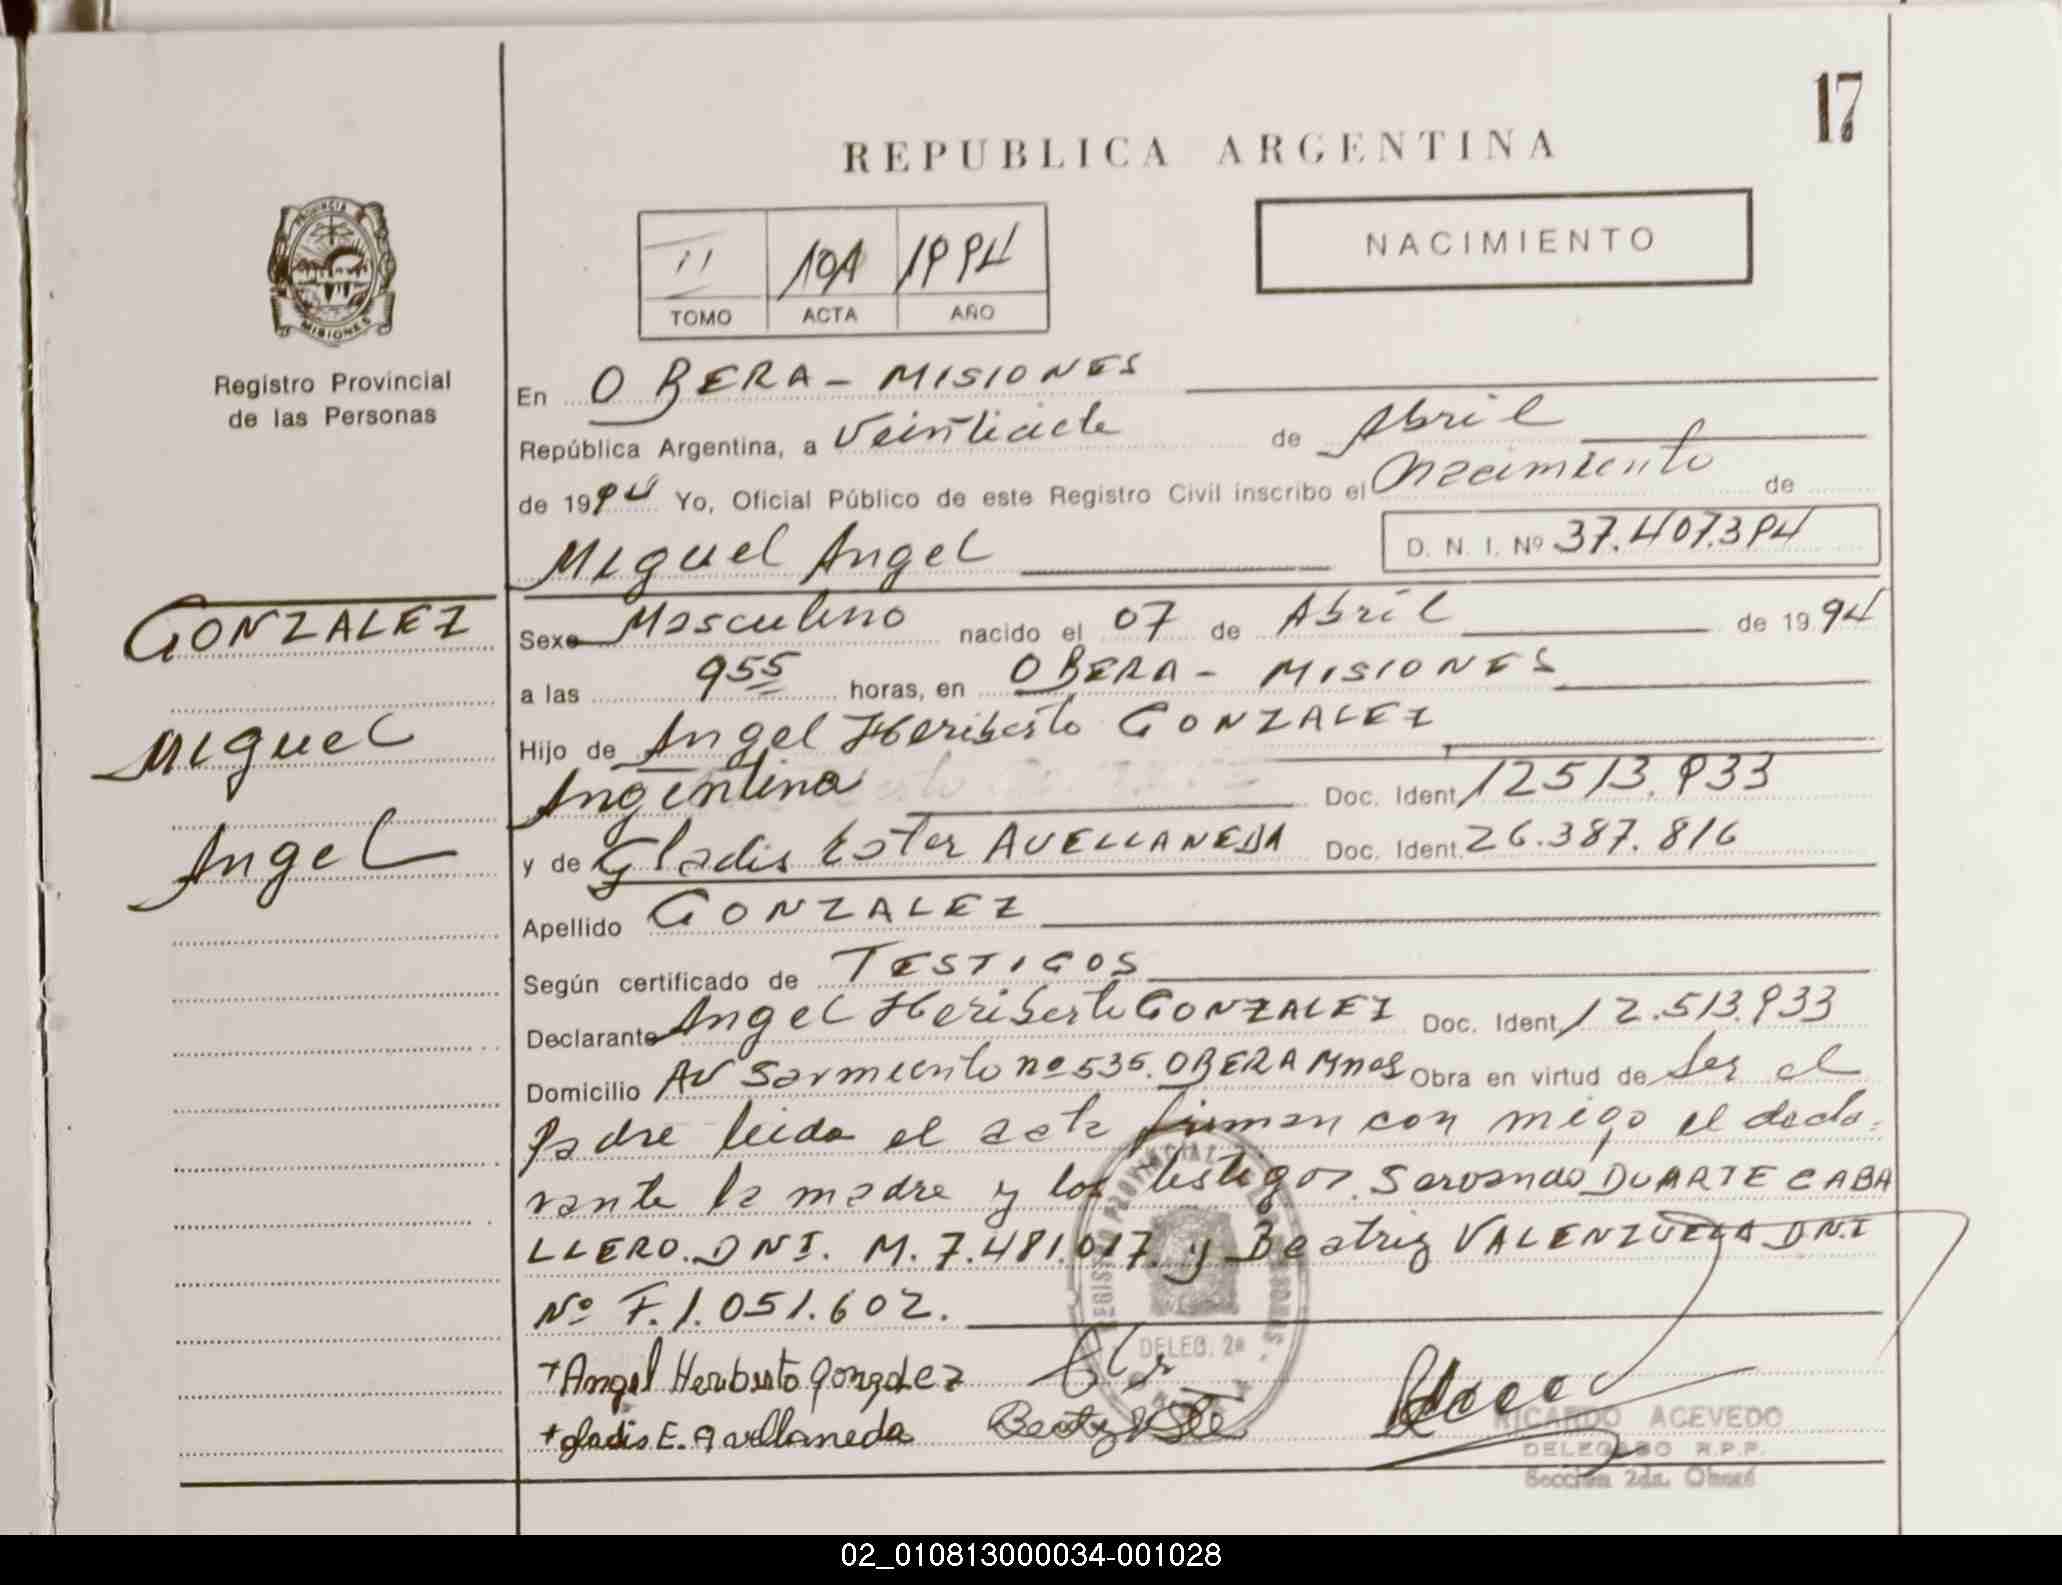 17
REPUBLICA ARGENTINA
PROVINCIA
MISIONES
Registro Provincial
de las Personas
II 101 1994
TOMO ACTA AÑO
NACIMIENTO
En OBERA - MISIONES
República Argentina, a Veintisiete de Abril
de 1994 Yo, Oficial Público de este Registro Civil inscribo el Nacimiento de
Miguel Angel D. N. I. Nº 37.407.394
GONZALEZ
Miguel
Angel
Sexo Masculino nacido el 07 de Abril de 1994
a las 9 55 horas, en OBERA - MISIONES
Hijo de Angel Heriberto GONZALEZ
Argentina Doc. Ident. 12513.933
y de Gladis Ester AVELLANEDA Doc. Ident. 26.387.816
Apellido GONZALEZ
Según certificado de TESTIGOS
Declarante Angel Heriberto GONZALEZ Doc. Ident. 12.513.933
Domicilio AV Sarmiento nº 535. OBERA Mnes Obra en virtud de Ser el
Padre leida el acta firman con migo el decla-
rante la madre y los testigos. Servando DUARTE CABA
LLERO. DNI. M. 7.481.017. y Beatriz VALENZUELA DNI
Nº F. 1.051.602.
+Angel Heriberto Gonzalez
+gladis E. Avellaneda
REGISTRO PROVINCIAL DE LAS PERSONAS
DELEG. 2a
RICARDO ACEVEDO
DELEGADO R.P.P.
Sección 2da. Oberá
02_010813000034-001028